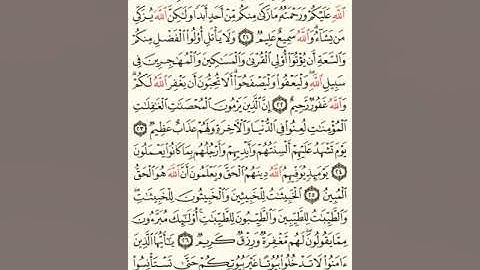 ٱللَّهِ عَلَيْكُمْ وَرَحْمَتُهُۥ مَا زَكَىٰ مِنكُم مِّنْ أَحَدٍ أَبَدًا وَلَٰكِنَّ ٱللَّهَ يُزَكِّى
مَن يَشَآءُ ۗ وَٱللَّهُ سَمِيعٌ عَلِيمٌ ۝٢١ وَلَا يَأْتَلِ أُو۟لُوا۟ ٱلْفَضْلِ مِنكُمْ
وَٱلسَّعَةِ أَن يُؤْتُوٓا۟ أُو۟لِى ٱلْقُرْبَىٰ وَٱلْمَسَٰكِينَ وَٱلْمُهَٰجِرِينَ فِى
سَبِيلِ ٱللَّهِ ۖ وَلْيَعْفُوا۟ وَلْيَصْفَحُوٓا۟ ۗ أَلَا تُحِبُّونَ أَن يَغْفِرَ ٱللَّهُ لَكُمْ ۗ
وَٱللَّهُ غَفُورٌ رَّحِيمٌ ۝٢٢ إِنَّ ٱلَّذِينَ يَرْمُونَ ٱلْمُحْصَنَٰتِ ٱلْغَٰفِلَٰتِ
ٱلْمُؤْمِنَٰتِ لُعِنُوا۟ فِى ٱلدُّنْيَا وَٱلْءَاخِرَةِ وَلَهُمْ عَذَابٌ عَظِيمٌ ۝٢٣
يَوْمَ تَشْهَدُ عَلَيْهِمْ أَلْسِنَتُهُمْ وَأَيْدِيهِمْ وَأَرْجُلُهُم بِمَا كَانُوا۟ يَعْمَلُونَ
۝٢٤ يَوْمَئِذٍ يُوَفِّيهِمُ ٱللَّهُ دِينَهُمُ ٱلْحَقَّ وَيَعْلَمُونَ أَنَّ ٱللَّهَ هُوَ ٱلْحَقُّ
ٱلْمُبِينُ ۝٢٥ ٱلْخَبِيثَٰتُ لِلْخَبِيثِينَ وَٱلْخَبِيثُونَ لِلْخَبِيثَٰتِ ۖ
وَٱلطَّيِّبَٰتُ لِلطَّيِّبِينَ وَٱلطَّيِّبُونَ لِلطَّيِّبَٰتِ ۚ أُو۟لَٰٓئِكَ مُبَرَّءُونَ
مِمَّا يَقُولُونَ ۖ لَهُم مَّغْفِرَةٌ وَرِزْقٌ كَرِيمٌ ۝٢٦ يَٰٓأَيُّهَا ٱلَّذِينَ
ءَامَنُوا۟ لَا تَدْخُلُوا۟ بُيُوتًا غَيْرَ بُيُوتِكُمْ حَتَّىٰ تَسْتَأْنِسُوا۟